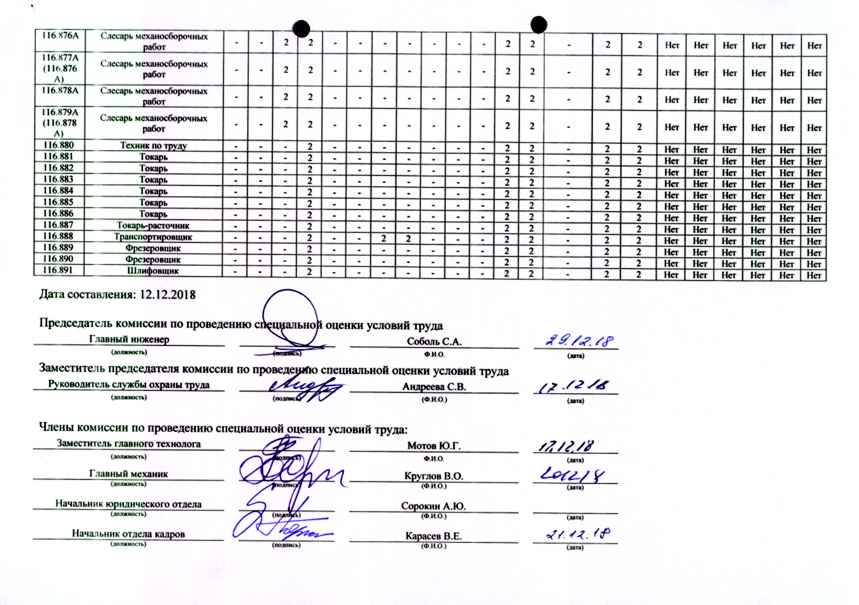 116.876А Слесарь механосборочных работ - - 2 2 - - - - - - - 2 2 - 2 2 Нет Нет Нет Нет Нет Нет
116.877А (116.876А) Слесарь механосборочных работ - - 2 2 - - - - - - - 2 2 - 2 2 Нет Нет Нет Нет Нет Нет
116.878А Слесарь механосборочных работ - - 2 2 - - - - - - - 2 2 - 2 2 Нет Нет Нет Нет Нет Нет
116.879А (116.878А) Слесарь механосборочных работ - - 2 2 - - - - - - - 2 2 - 2 2 Нет Нет Нет Нет Нет Нет
116.880 Техник по труду - - - 2 - - - - - - - 2 2 - 2 2 Нет Нет Нет Нет Нет Нет
116.881 Токарь - - - 2 - - - - - - - 2 2 - 2 2 Нет Нет Нет Нет Нет Нет
116.882 Токарь - - - 2 - - - - - - - 2 2 - 2 2 Нет Нет Нет Нет Нет Нет
116.883 Токарь - - - 2 - - - - - - - 2 2 - 2 2 Нет Нет Нет Нет Нет Нет
116.884 Токарь - - - 2 - - - - - - - 2 2 - 2 2 Нет Нет Нет Нет Нет Нет
116.885 Токарь - - - 2 - - - - - - - 2 2 - 2 2 Нет Нет Нет Нет Нет Нет
116.886 Токарь - - - 2 - - - - - - - 2 2 - 2 2 Нет Нет Нет Нет Нет Нет
116.887 Токарь-расточник - - - 2 - - - - - - - 2 2 - 2 2 Нет Нет Нет Нет Нет Нет
116.888 Транспортировщик - - - 2 - - 2 2 - - - 2 2 - 2 2 Нет Нет Нет Нет Нет Нет
116.889 Фрезеровщик - - - 2 - - - - - - - 2 2 - 2 2 Нет Нет Нет Нет Нет Нет
116.890 Фрезеровщик - - - 2 - - - - - - - 2 2 - 2 2 Нет Нет Нет Нет Нет Нет
116.891 Шлифовщик - - - 2 - - - - - - - 2 2 - 2 2 Нет Нет Нет Нет Нет Нет
Дата составления: 12.12.2018
Председатель комиссии по проведению специальной оценки условий труда
Главный инженер Соболь С.А. 29.12.18
(должность) (подпись) Ф.И.О. (дата)
Заместитель председателя комиссии по проведению специальной оценки условий труда
Руководитель службы охраны труда Андреева С.В. 17.12.18
(должность) (подпись) (Ф.И.О.) (дата)
Члены комиссии по проведению специальной оценки условий труда:
Заместитель главного технолога Мотов Ю.Г. 17.12.18
(должность) (подпись) Ф.И.О. (дата)
Главный механик Круглов В.О.
(должность) (подпись) (Ф.И.О.) (дата)
Начальник юридического отдела Сорокин А.Ю.
(должность) (подпись) (Ф.И.О.) (дата)
Начальник отдела кадров Карасев В.Е. 21.12.18
(должность) (подпись) (Ф.И.О.) (дата)